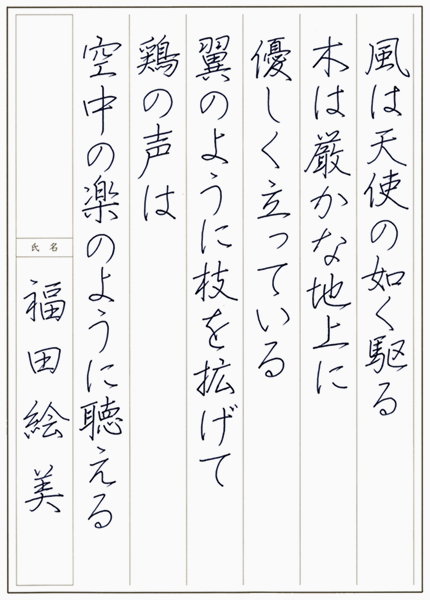 風は天使の如く駆る
木は厳かな地上に
優しく立っている
翼のように枝を拡げて
鶏の声は
空中の楽のように聴える
氏名
福田絵美